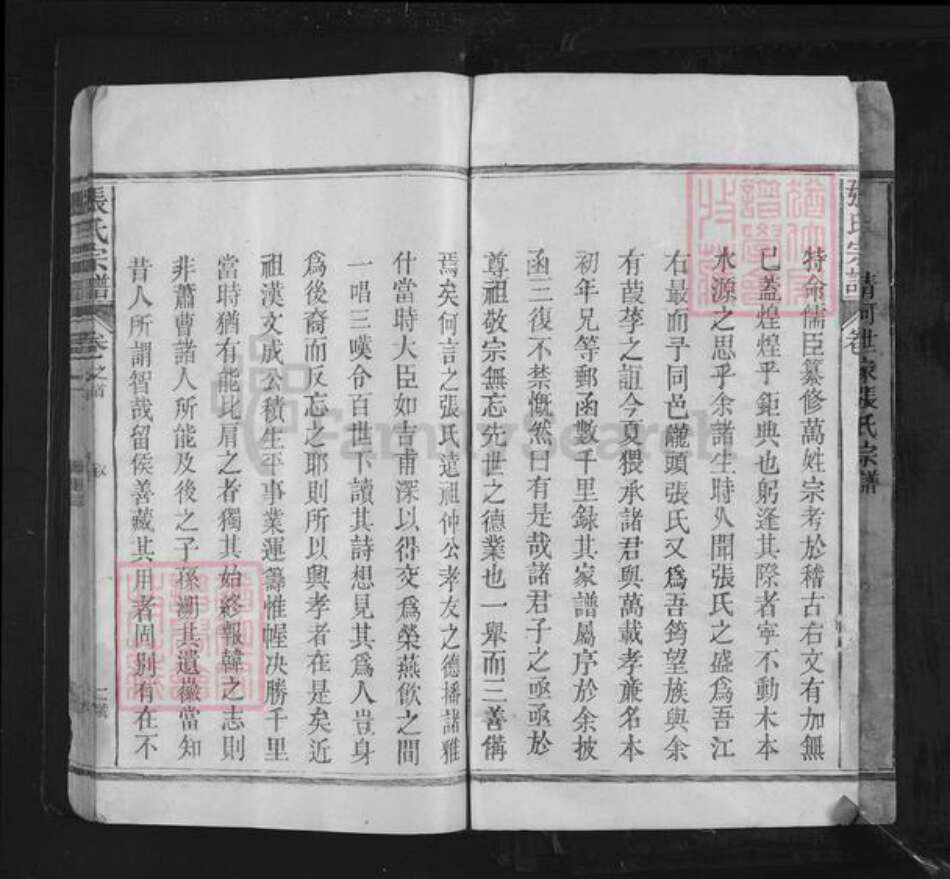 清河世家張氏宗譜
張氏宗譜 卷
特命儒臣纂修萬姓宗考於稽古右文有加無
已蓋煌煌乎鉅典也躬逢其際者寧不動木本
水源之思乎余諸生時久聞張氏之盛為吾江
右最而予同邑龍頭張氏又為吾筠望族與余
有葭莩之誼今夏猥承諸君與萬載孝亷名本
初年兄等郵函數千里録其家譜屬序於余披
函三復不禁慨然曰有是哉諸君子之亟亟於
尊祖敬宗無忘先世之德業也一舉而三善備
焉矣何言之張氏遠祖仲公孝友之德播諸雅
什當時大臣如吉甫深以得交為榮燕飲之間
一唱三嘆令百世下讀其詩想見其為人豈身
為後裔而反忘之耶則所以興孝者在是矣近
祖漢文成公積生平事業運籌惟幄决勝千里
當時猶有能比肩之者獨其始終報韓之志則
非蕭曹諸人所能及後之子孫溯其遺徽當知
昔人所謂智哉留侯善藏其用者固别有在不
張氏宗譜 卷 之首 叙
FamilySearch